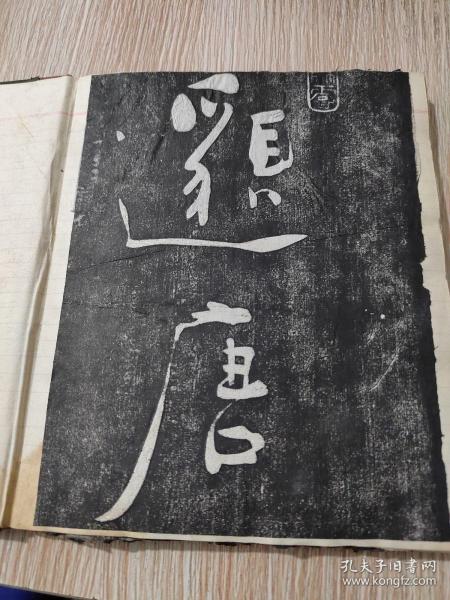 邈
唐
孔夫子旧书网
www.kongfz.com